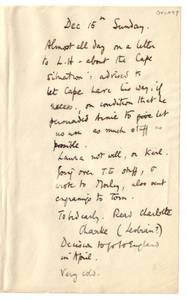 Dec 15th Sunday.
Almost all day on a letter
to L.H - about the Cape
situation; advised to
let Cape have his way, if
necess, on condition that he
persuaded Arnie to let
us use as much stuff as
possible.
Laura not well, or Karl.
Going over T.E stuff, &
wrote to Morley, also sent
engravings to tom.
To bed early. Read Charlotte
Clarke
Decision to go to England
in April.
Very cold.